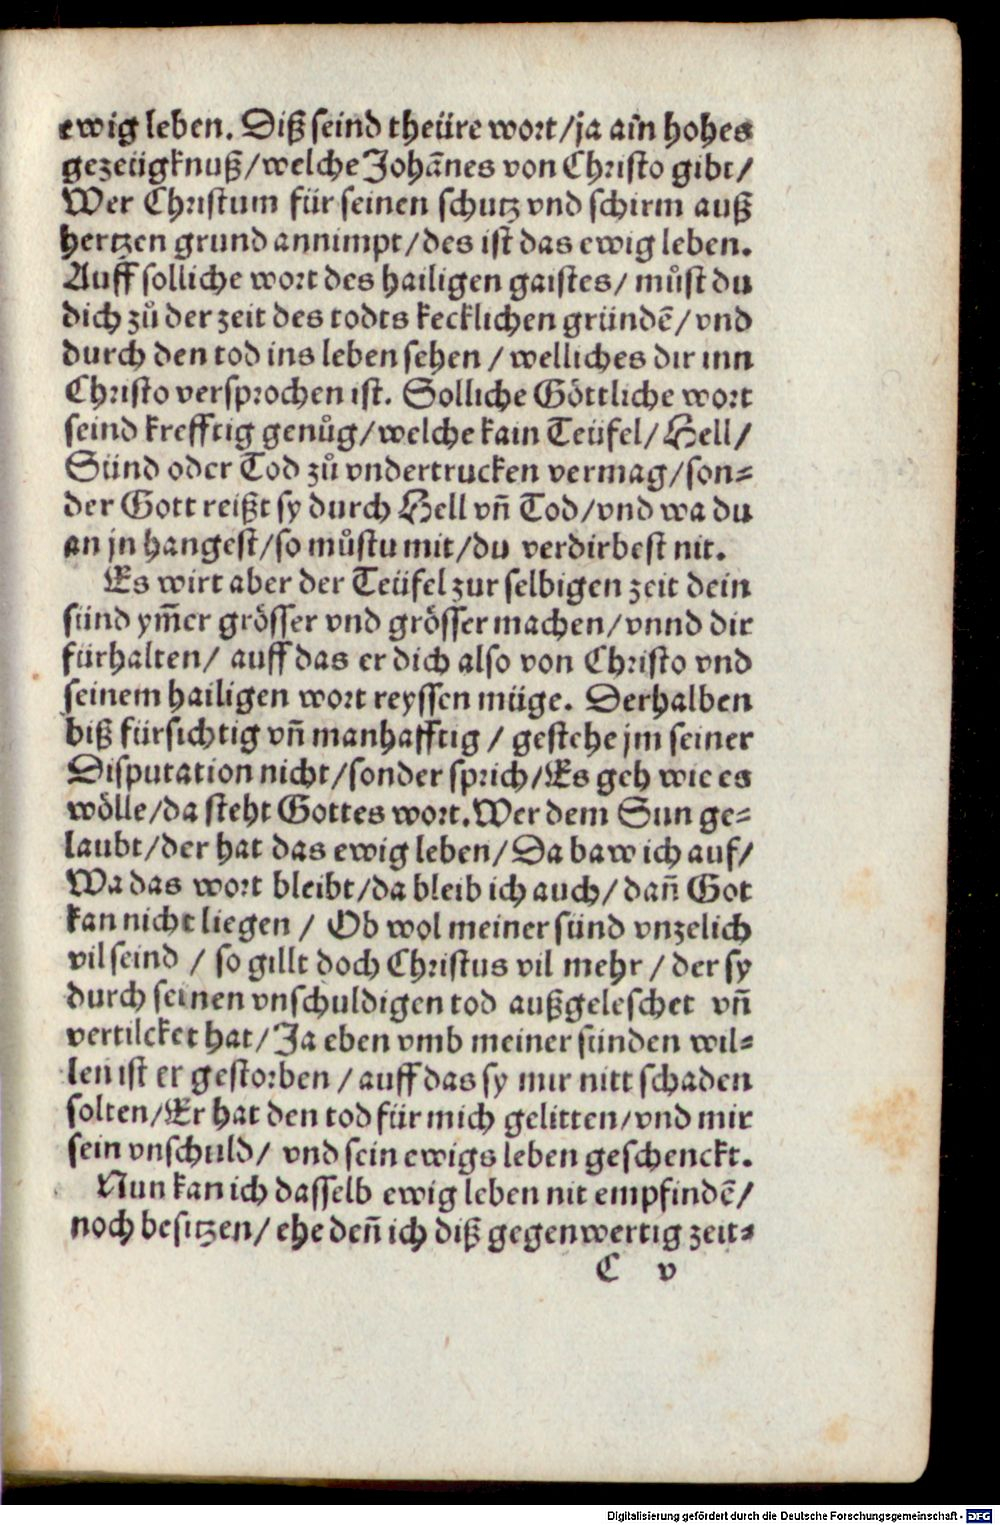 ewig leben. Diß seind theüre wort/ja ain hohes
gezeügknuß/welche Johãnes von Christo gibt/
Wer Christum für seinen schutz vnd schirm auß
hertzen grund annimpt/des ist das ewig leben.
Auff solliche wort des hailigen gaistes/ můst du
dich zů der zeit des todts kecklichen gründẽ/vnd
durch den tod ins leben sehen / welliches dir inn
Christo versprochen ist. Solliche Göttliche wort
seind krefftig genůg/welche kain Teüfel/Hell/
Sünd oder Tod zů vndertrucken vermag/son⸗
der Gott reißt sy durch Hell vñ Tod/vnd wa du
an jn hangest/so můstu mit/du verdirbest nit.
Es wirt aber der Teüfel zur selbigen zeit dein
sünd ym̃er grösser vnd grösser machen/vnnd dir
fürhalten/ auff das er dich also von Christo vnd
seinem hailigen wort reyssen müge. Derhalben
biß fürsichtig vñ manhafftig / gestehe jm seiner
Disputation nicht/sonder sprich/Es geh wie es
wölle/da steht Gottes wort. Wer dem Sun ge⸗
laubt/der hat das ewig leben/Da baw ich auf/
Wa das wort bleibt/da bleib ich auch/dañ Got
kan nicht liegen / Ob wol meiner sünd vnzelich
vil seind / so gillt doch Christus vil mehr / der sy
durch seinen vnschuldigen tod außgeleschet vñ
vertilcket hat/Ja eben vmb meiner sünden wil⸗
len ist er gestorben / auff das sy mir nitt schaden
solten/Er hat den tod für mich gelitten/vnd mir
sein vnschuld/ vnd sein ewigs leben geschenckt.
Nun kan ich dasselb ewig leben nit empfindẽ/
noch besitzen/ehe deñ ich diß gegenwertig zeit⸗
C v
Digitalisierung gefördert durch die Deutsche Forschungsgemeinschaft - DFG